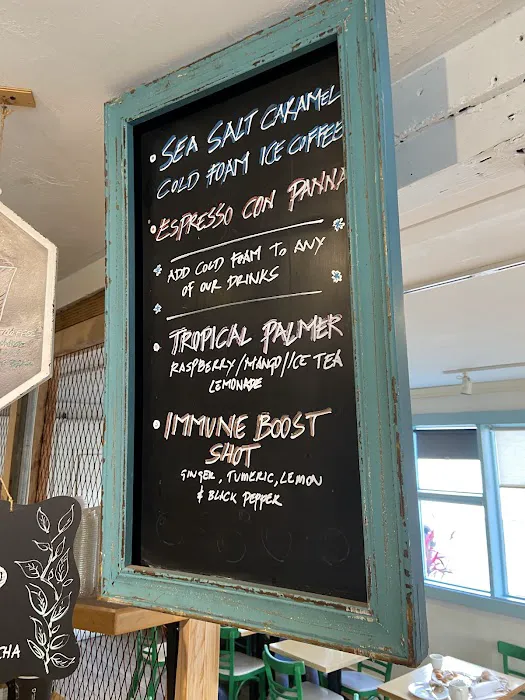 SEA SALT CARAMEL
COLD FOAM ICE COFFEE
ESPRESSO CON PANNA
ADD COLD FOAM TO ANY
OF OUR DRINKS
TROPICAL PALMER
RASPBERRY/MANGO/ICE TEA
LEMONADE
IMMUNE BOOST
SHOT
GINGER, TUMERIC, LEMON
& BLACK PEPPER
CHA